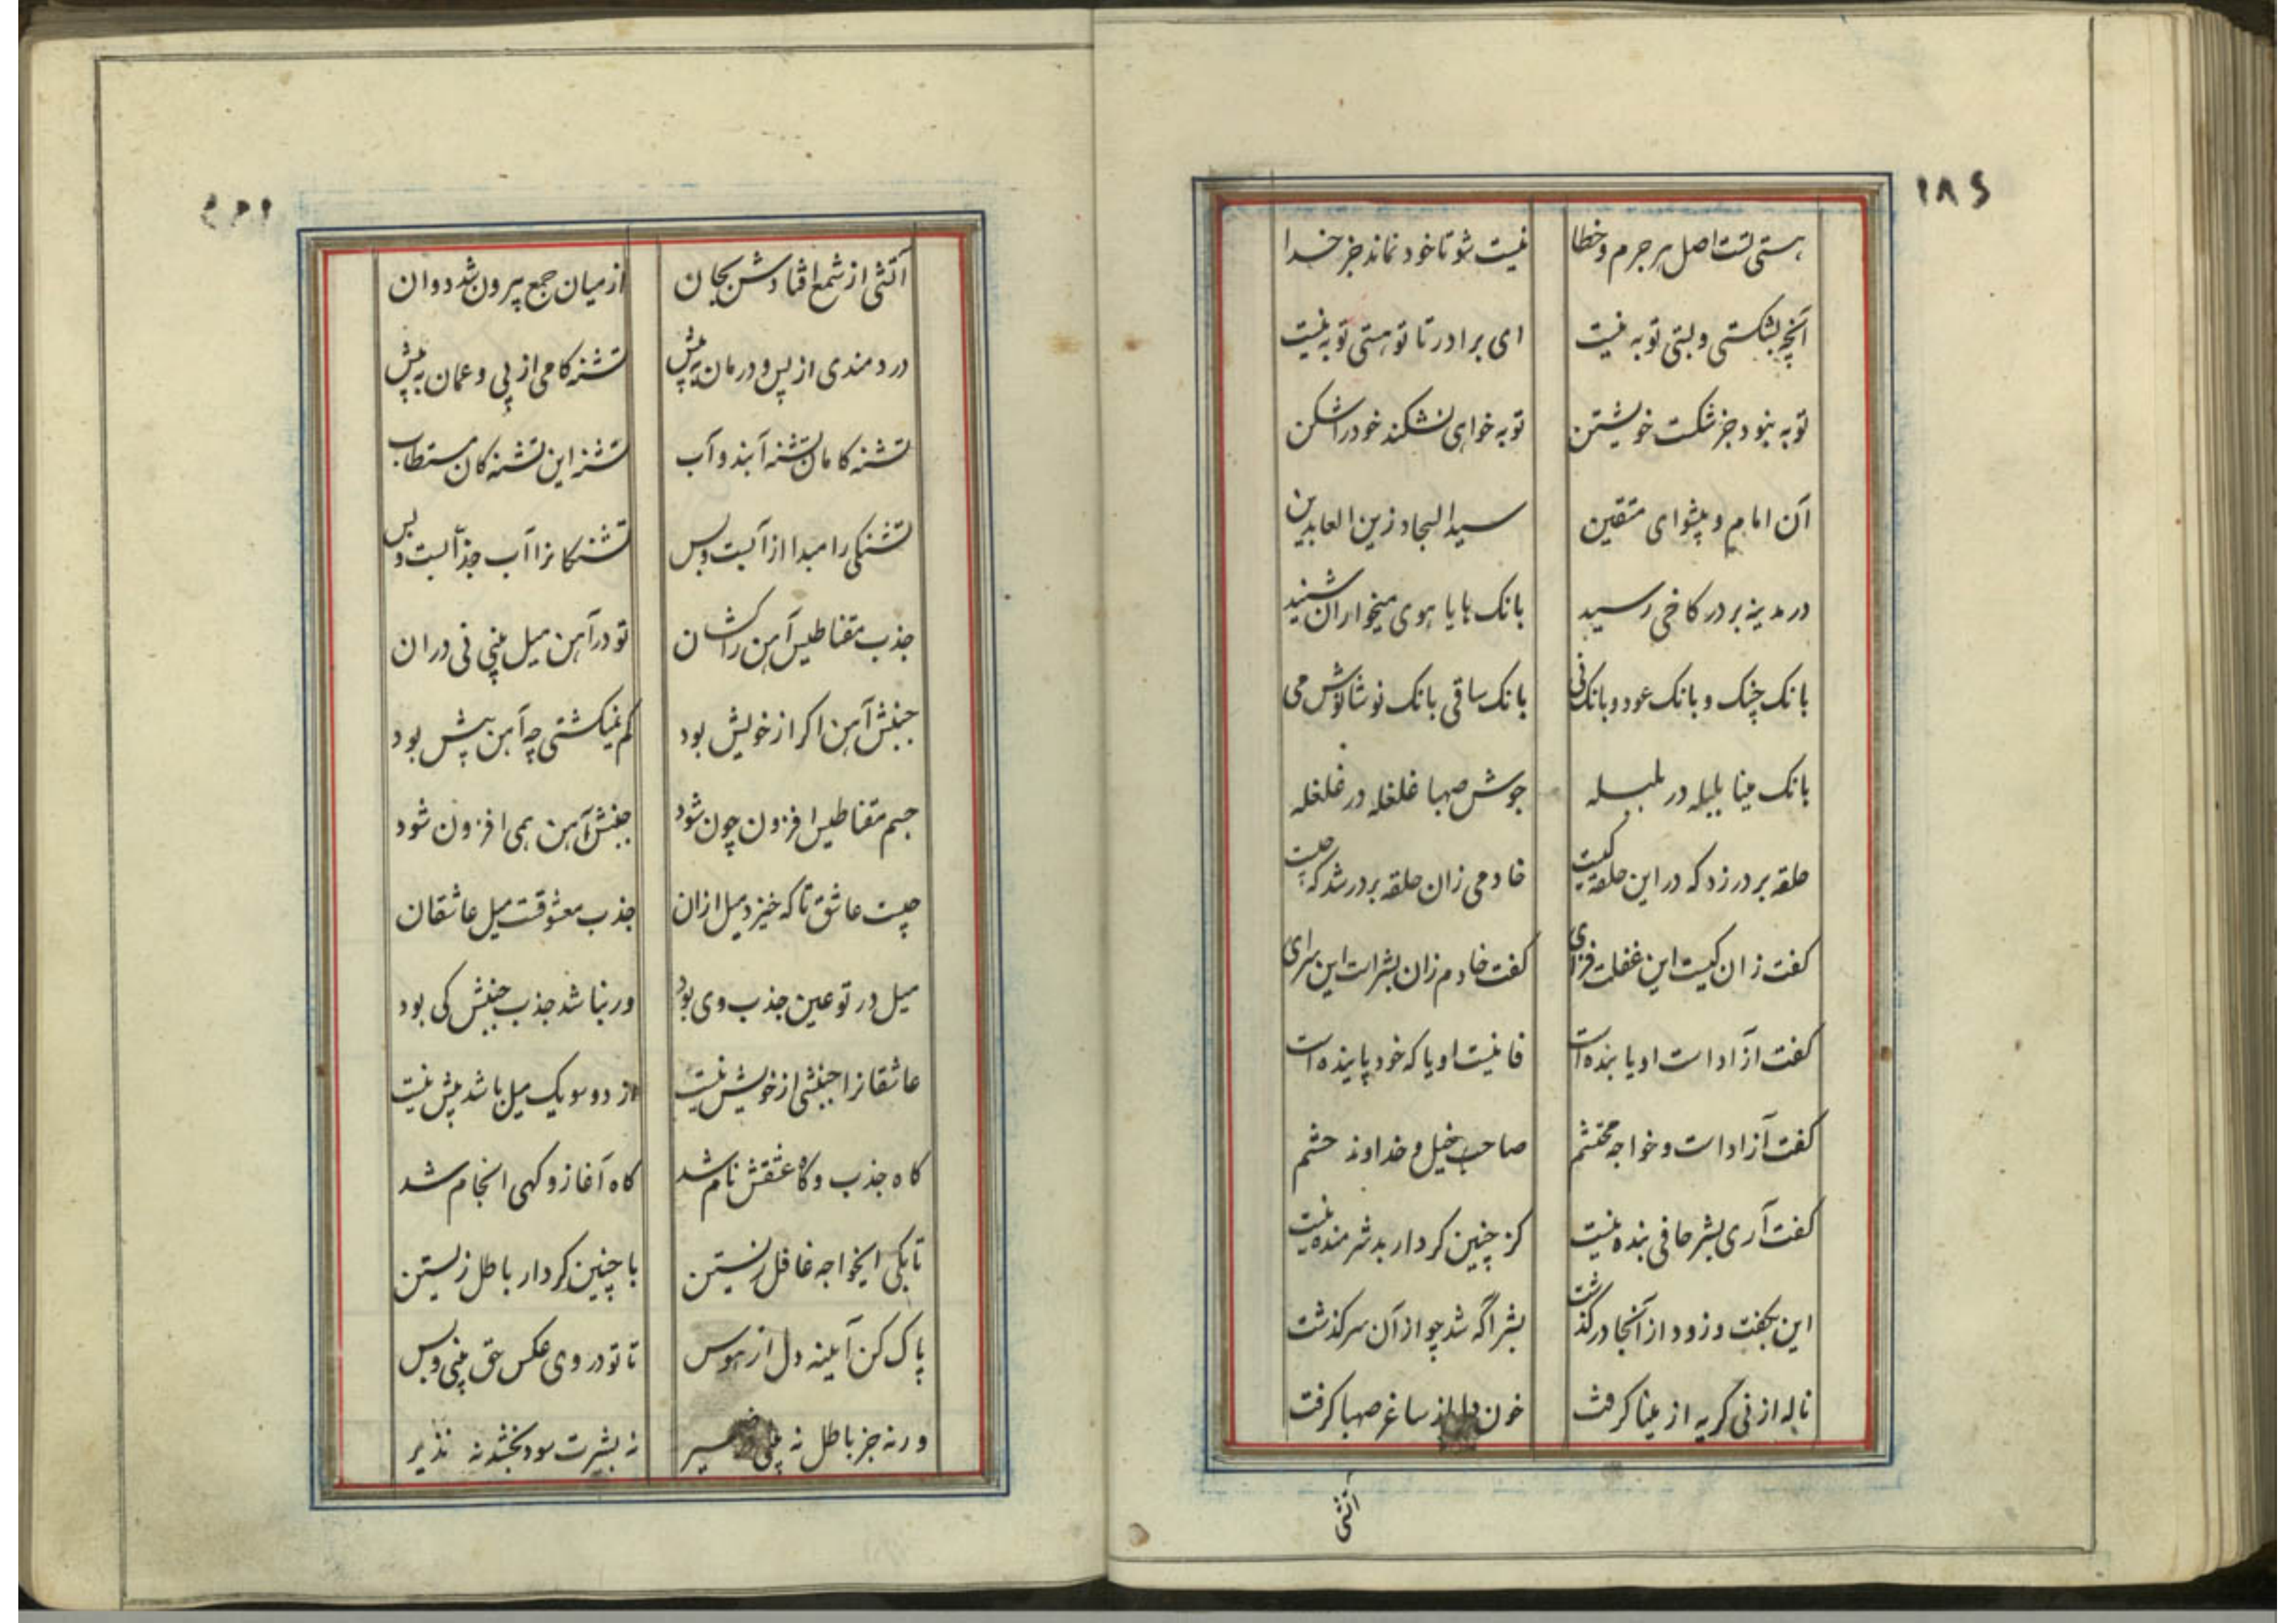 ۱۸۶
هستی تست اصل هر جرم و خطا نیست شو تا خود نماند جز خدا
آنچه بشکستی و بستی توبه نیست ای برادر تا تو هستی توبه نیست
توبه نبود جز شکست خویشتن توبه خواهی نشکند خود را شکن
آن امام و پیشوای متقین سید السجاد زین العابدین
در مدینه بر در کاخی رسید بانک هایا هوی میخواران شنید
بانک چنک و بانک عود و بانک نی بانک ساقی بانک نوشانوش می
بانک مینا بلبله در بلبله جوش صهبا غلغله در غلغله
حلقه بر در زد که در این حلقه کیست خادمی زان حلقه بر در شد که چیست
کفت زان کیست این غفلت فزای کفت خادم زان بشر است این سرای
کفت آزاد است او یا بنده است فانیست او یا که خود پاینده است
کفت آزاد است و خواجه محتشم صاحب خیل و خداوند حشم
کفت آری بشر حافی بنده نیست کز چنین کردار بد شرمنده نیست
این بکفت و زود از آنجا درکذشت بشر اگه شد چو از آن سرکذشت
ناله از نی کریه از مینا کرفت خون دل از ساغر صهبا کرفت
آتشی
آتشی از شمع افتادش بجان از میان جمع بیرون شد دوان
دردمندی از پس و درمان به پیش تشنه کامی از پی و عمان به پیش
تشنه کامان تشنه آبند و آب تشنه این تشنه کان مستطاب
تشنکی را مبدا از آبست و بس تشنکانرا آب جذابست و بس
جذب مقناطیس آهن را کشان تو در آهن میل بینی نی در ان
جنبش آهن اکر از خویش بود کم نمیکشتی چه آهن بیش بود
جسم مقناطیس افزون چون شود جنبش آهن همی افزون شود
چیست عاشق تا که خیزد میل ازان جذب معشوقست میل عاشقان
میل در تو عین جذب وی بود ور نباشد جذب جنبش کی بود
عاشقانرا جنبشی از خویش نیست از دو سو یک میل باشد بیش نیست
کاه جذب و کاه عشقش نام شد کاه آغاز و کهی انجام شد
تابکی ایخواجه غافل زیستن با چنین کردار باطل زیستن
پاک کن آیینه دل از هوس تا تو در وی عکس حق بینی و بس
ورنه جز باطل نه بینی نه بشیرت سود بخشد نه نذیر